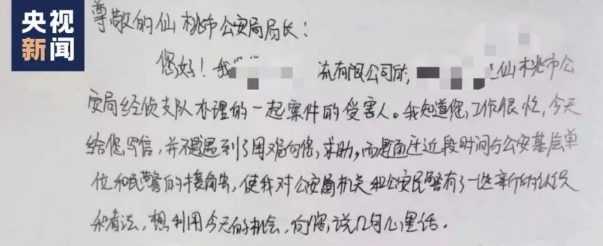 央视
新闻
尊敬的仙桃市公安局局长:
您好!我 有限公司 仙桃市公
安局经侦支队办理的一起案件的受害人。我知道您工作很忙,今天
给您写信,并不是遇到了困难向您求助,而是通过近段时间与公安基层单
位和民警的接触,使我对公安局机关和公安民警有了一些新的认识
和看法,想利用今天的机会,向您说几句心里话。